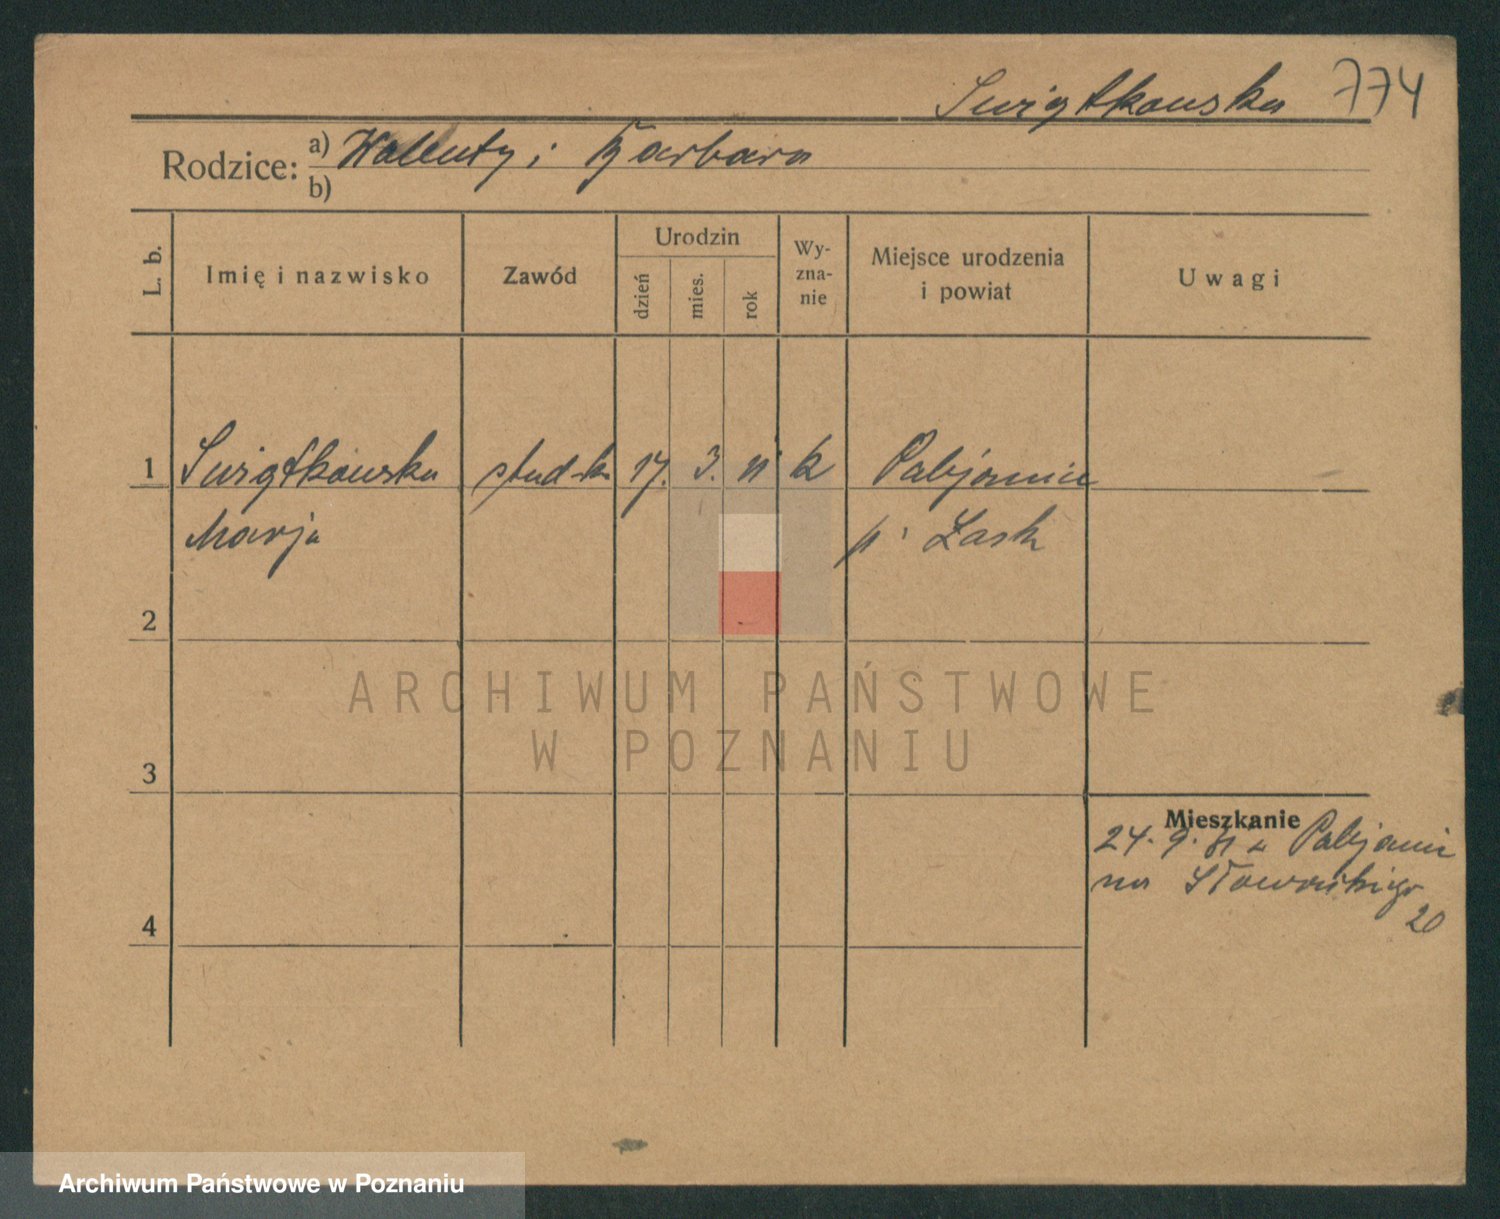 Świątkowska 774
Rodzice: a) Walenty i Barbara
b)
L. b.
Imię i nazwisko
Zawód
Urodzin
dzień
mies.
rok
Wy-
zna-
nie
Miejsce urodzenia
i powiat
Uwagi
1 Świątkowska stud-ka 17. 3. 11 k Pabjanice
Marja p. Łask
2
3
4
Mieszkanie
24. 9. 31 z Pabjanic
na Słowackiego
20
ARCHIWUM PAŃSTWOWE
W POZNANIU
Archiwum Państwowe w Poznaniu